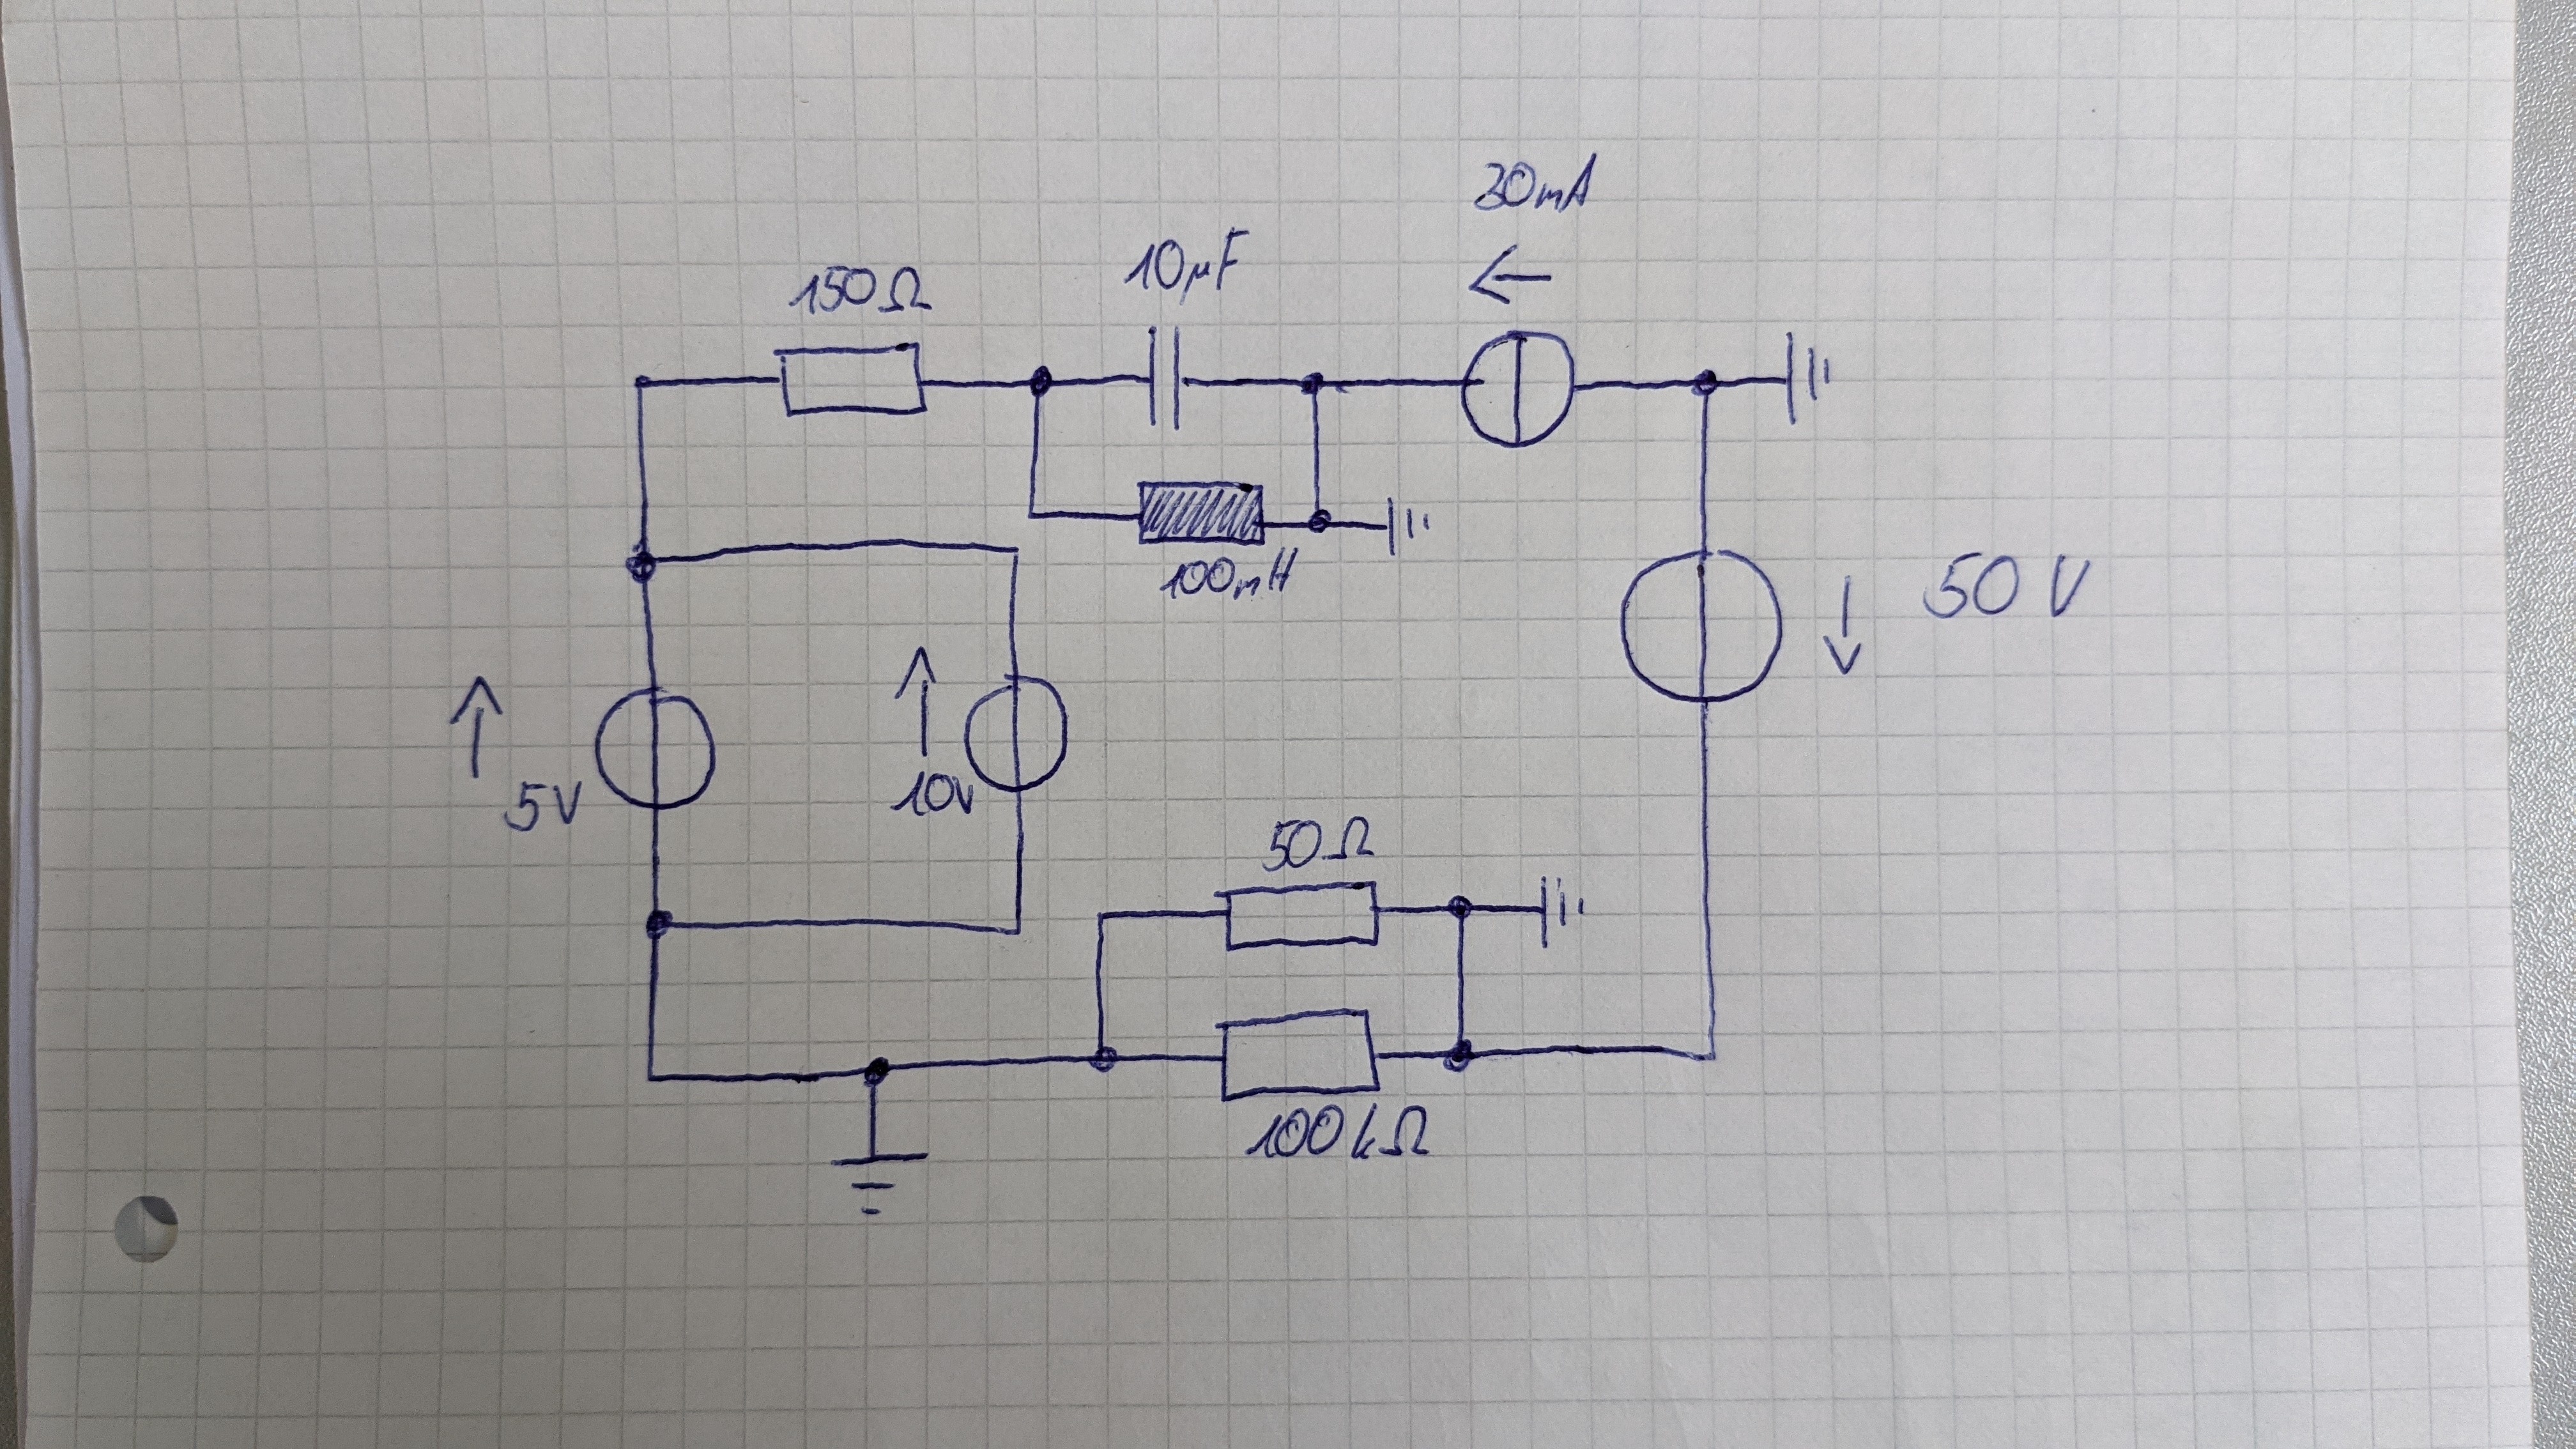 30mA
10µF
150Ω
100mH
50V
5V
10V
50Ω
100kΩ